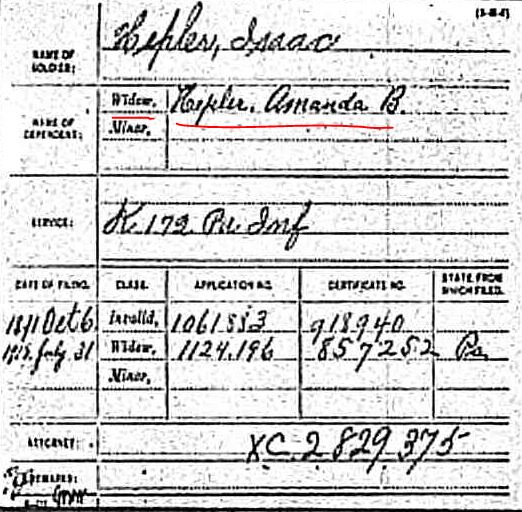 (3-014)
NAME OF SOLDIER: Hepler, Isaac
NAME OF DEPENDENT: Widow, Hepler, Amanda B.
Minor,
SERVICE: K 172 Pa Inf
DATE OF FILING. CLASS. APPLICATION NO. CERTIFICATE NO. STATE FROM WHICH FILED.
1891 Oct 6 Invalid, 1061883 918940
1918 July 31 Widow, 1124.196 857252 Pa
Minor,
ATTORNEY: XC 2 829 375
REMARKS: